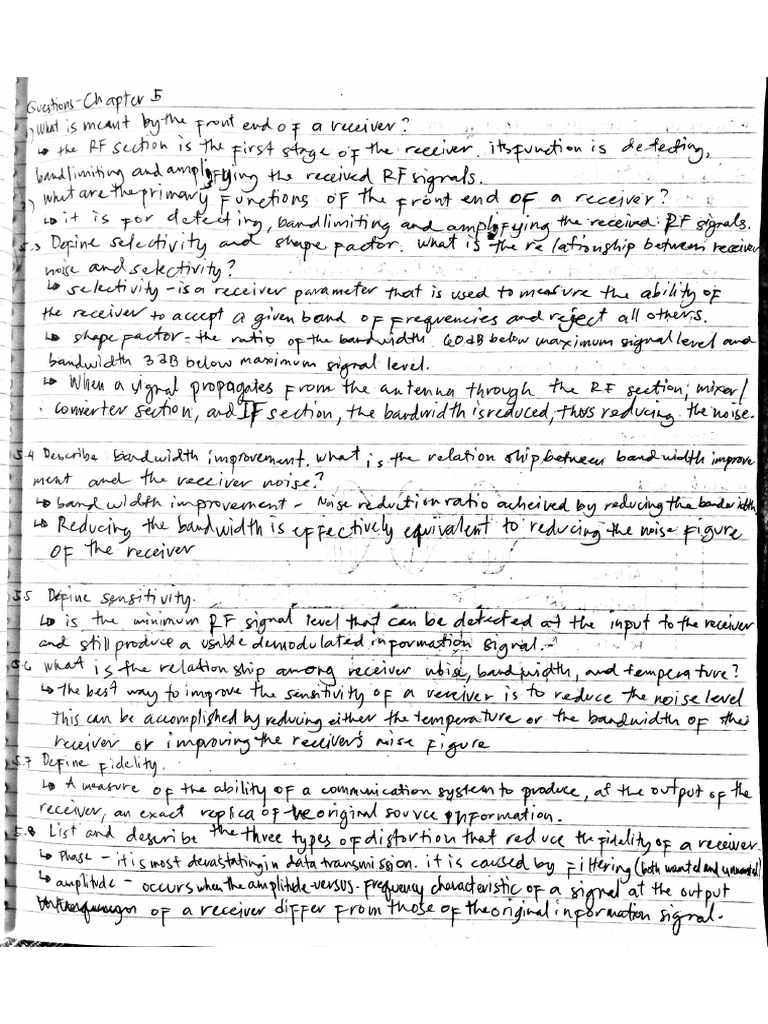 Questions - Chapter 5
1) What is meant by the front end of a receiver?
↳ the RF section is the first stage of the receiver. its function is detecting,
bandlimiting and amplifying the received RF signals.
2) what are the primary functions of the front end of a receiver?
↳ it is for detecting, bandlimiting and amplifying the received RF signals.
5.3 Define selectivity and shape factor. what is the relationship between receiver
noise and selectivity?
↳ selectivity - is a receiver parameter that is used to measure the ability of
the receiver to accept a given band of frequencies and reject all others.
↳ shape factor - the ratio of the bandwidth 60dB below maximum signal level and
bandwidth 3dB below maximum signal level.
↳ When a signal propagates from the antenna through the RF section, mixer/
converter section, and IF section, the bandwidth is reduced, thus reducing the noise.
5.4 Describe bandwidth improvement. what is the relationship between bandwidth improve
ment and the receiver noise?
↳ bandwidth improvement - Noise reduction ratio acheived by reducing the bandwidth
↳ Reducing the bandwidth is effectively equivalent to reducing the noise figure
of the receiver
5.5 Define sensitivity.
↳ is the minimum RF signal level that can be detected at the input to the receiver
and still produce a usable demodulated information signal.
5.6 what is the relationship among receiver noise, bandwidth, and temperature?
↳ the best way to improve the sensitivity of a receiver is to reduce the noise level
This can be accomplished by reducing either the temperature or the bandwidth of the
receiver or improving the receiver's noise figure
5.7 Define fidelity.
↳ A measure of the ability of a communication system to produce, at the output of the
receiver, an exact replica of the original source information.
5.8 List and describe the three types of distortion that reduce the fidelity of a receiver.
↳ Phase - it is most devastating in data transmission. it is caused by filtering (both wanted and unwanted)
↳ amplitude - occurs when the amplitude-versus-frequency characteristic of a signal at the output
of a receiver differ from those of the original information signal.